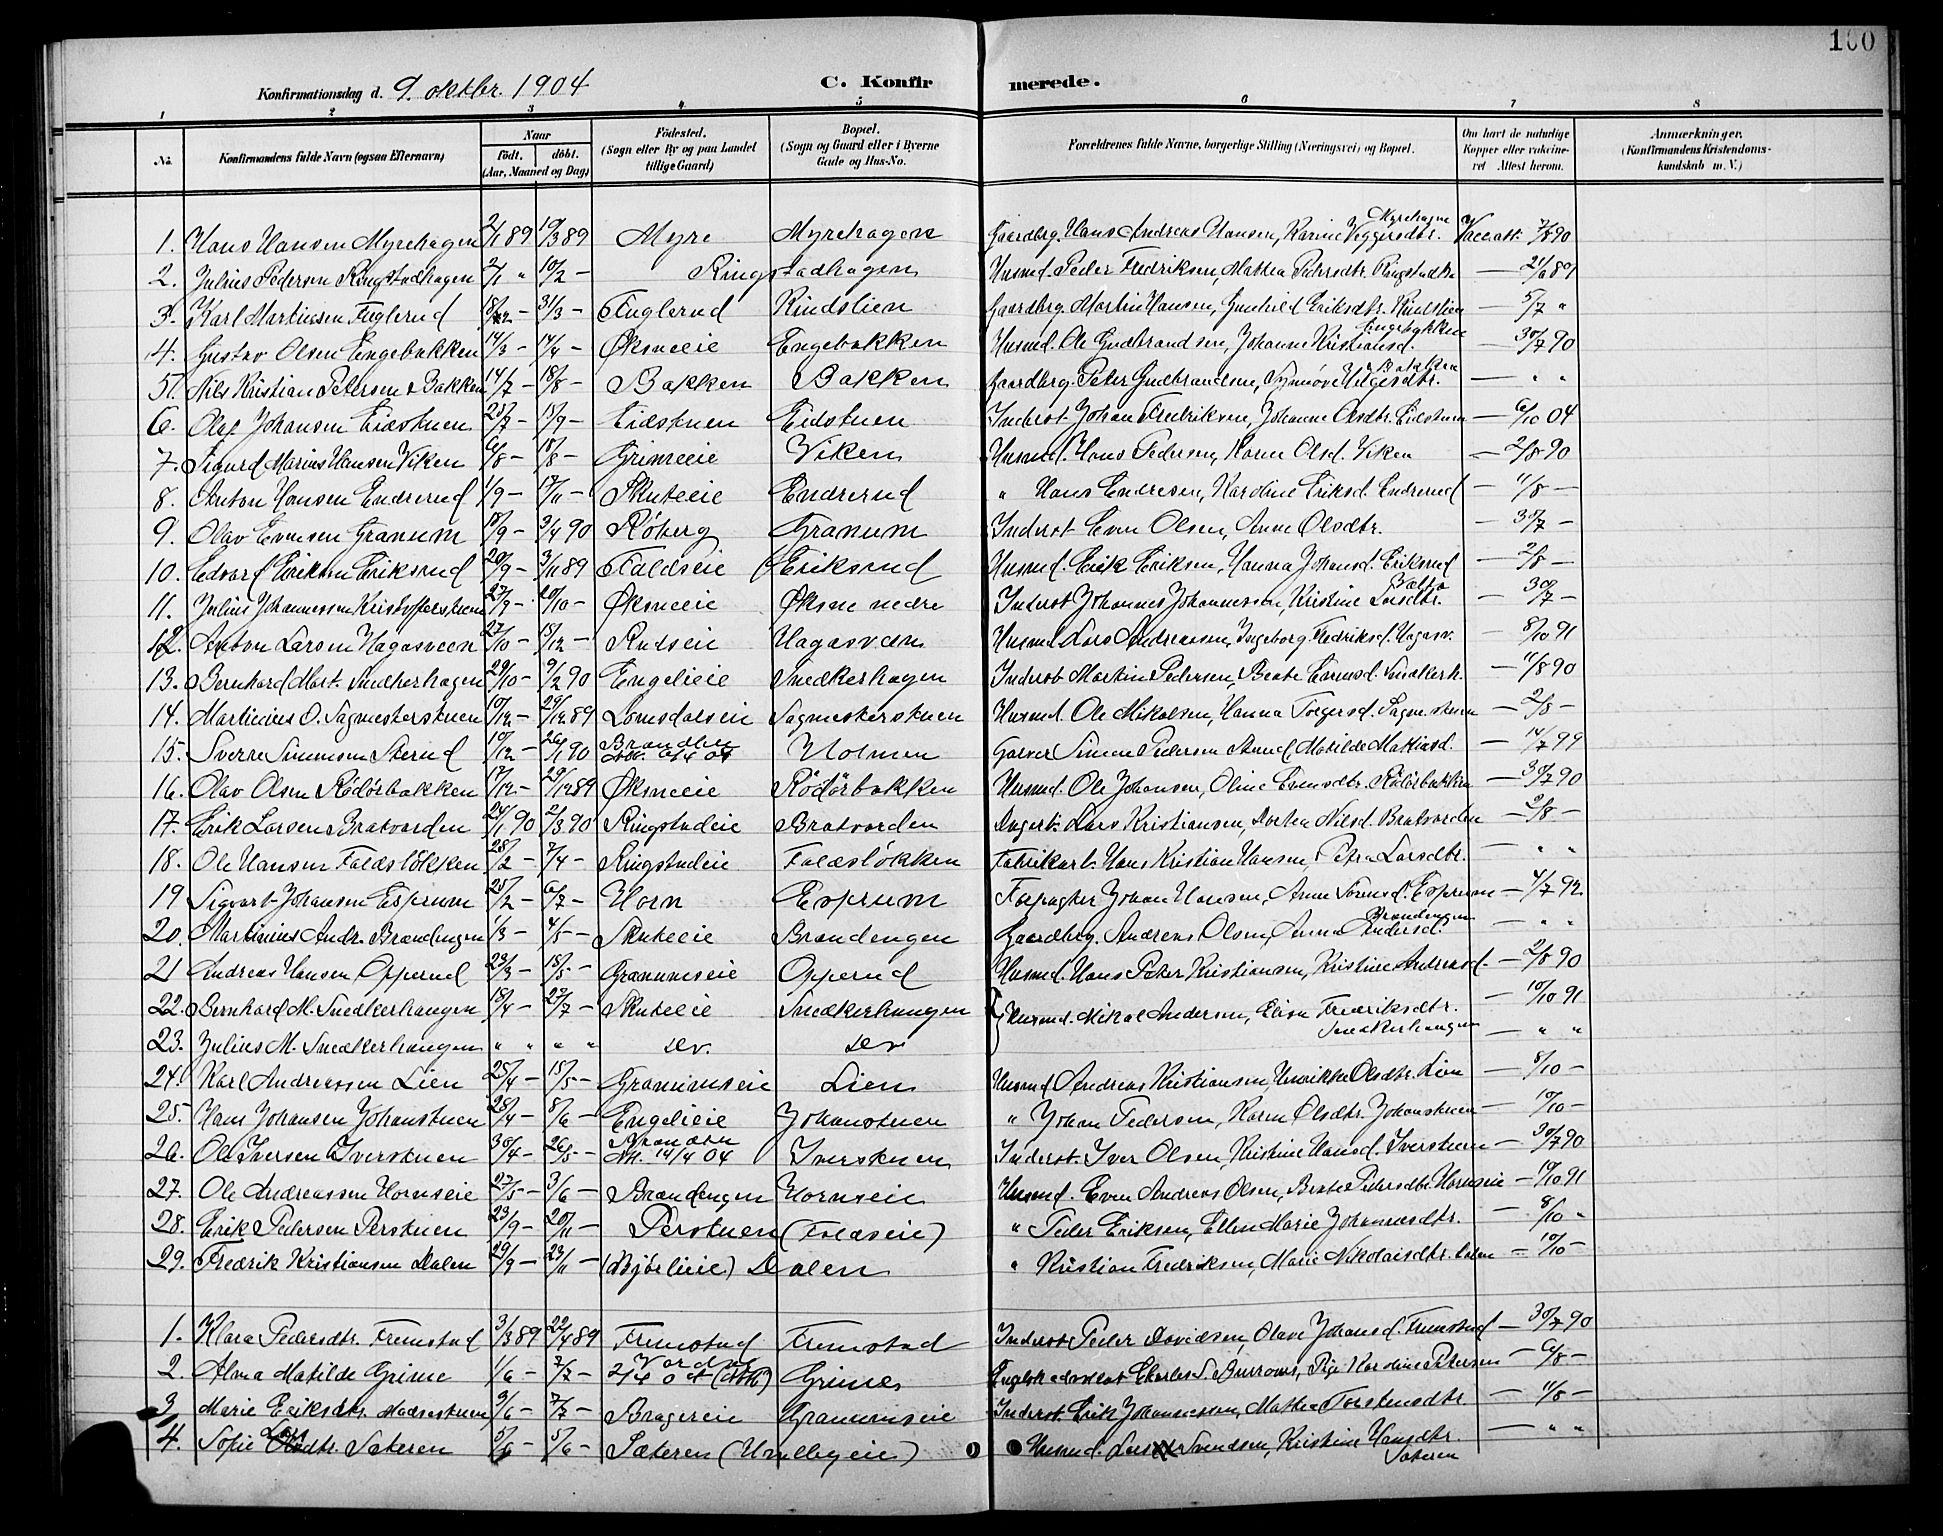 100
Konfirmationsdag d. 9. oktbr. 1904 C. Konfirmerede.
1 2 3 4 5 6 7 8
No. Konfirmandens fulde Navn (ogsaa Efternavn) Naar födt. döbt. (Aar, Maaned og Dag) Födested. (Sogn eller By og paa Landet tillige Gaard) Bopæl. (Sogn og Gaard eller i Byerne Gade og Hus-No. Forældrenes fulde Navne, borgerlige Stilling (Næringsvei) og Bopæl. Om havt de naturlige Kopper eller vakcineret Attest herom. Anmærkninger. (Konfirmandens Kristendomskundskab m. V.)
1. Hans Hansen Myrehagen 2/1 89 10/3 89 Myre Myrehagen Gaardbrg. Hans Andreas Hansen, Karine Viggersdtr. Myrehagen Vacc.att.
2. Julius Pedersen Ringstadhagen 2/1 " 10/2 — Ringstadhagen Husmd. Peder Fredriksen, Mathea Pedersdtr. Ringstadha —
3. Karl Martinsen Fuglerud 31/3 — Fuglerud Rindslien Gaardbrg. Martin Hansen, Gunhild Eriksdtr. Rindslien — 5/7 "
4. Gustav Olsen Engebakken 14/3 — 14/4 — Øksneeie Engebakken Husmd. Ole Gudbrandsen, Johanne Kristiansd. Engebakken — 30/7 90
5. Nils Kristian Petersen Bakken 14/7 — 18/8 — Bakken Bakken Gaardbrg. Peter Gudbrandsen, Synnøve Helgesdtr. Bakken — " "
6. Olaf Johansen Eidstuen 25/7 — 15/9 — Eidstuen Eidstuen Inderst Johan Fredriksen, Johanne Olsdtr. Eidstuen — 6/10 04
7. Sigurd Marius Hansen Viken 6/8 — 18/8 — Grimeeie Viken Husmd. Hans Pedersen, Karen Olsd. Viken — 2/8 90
8. Anton Hansen Endrerud 1/9 — 17/11 — Skuteeie Endrerud " Hans Endresen, Karoline Eriksd. Endrerud — 11/8 —
9. Olav Evensen Granum 18/9 — 3/4 90 Røberg Granum Inderst Even Olsen, Anne Olsdtr. — 30/7 —
10. Edvard Eriksen Eriksrud 20/9 — 3/11 89 Faldseie Eriksrud Husmd. Erik Eriksen, Hanna Johansd. Eriksrud — 2/8 —
11. Julius Johannessen Kristofferstuen 27/9 — 20/10 — Øksneeie Øksne nedre Inderst Johannes Johannessen, Kristine Larsdtr. — 30/7 —
12. Anton Larsen Hagasveen 27/10 — 15/12 — Rudseie Hagasveen Husmd. Lars Andreassen, Ingeborg Fredriksd. Hagasv. — 8/10 91
13. Bernhard Mart. Snedkerhagen 29/10 — 9/2 90 Engelieie Snedkerhagen Inderst Martin Pedersen, Beate Evensd. Snedkerh. — 11/8 90
14. Martinius O. Sagmesterstuen 10/12 — 29/12 89 Lomsdalseie Sagmesterstuen Husmd. Ole Mikalsen, Hanna Torgersd. Sagm.stuen — 2/8 —
15. Sverre Simensen Sterud 10/12 — 26/1 90 Brandbu Holmen Garver Simen Pedersen Sterud, Matilde Mathiasd. — 14/7 99
16. Olav Olsen Rödörbakken 17/12 — 29/12 89 Øksneeie Rödörbakken Husmd. Ole Johansen, Oline Evensdtr. Rödörbakken — 30/7 90
17. Erik Larsen Bratvorden 24/1 90 2/3 90 Ringstadeie Bratvorden Dagarb. Lars Kristiansen, Dorthea Nilsd. Bratvorden — 2/8 —
18. Ole Hansen Faldsløkken 28/2 — 7/4 — Ringstadeie Faldsløkken Fabrikarb. Hans Kristian Hansen, Petra Larsdtr. — " "
19 Sigvart Johansen Esprum 25/2 — 6/7 — Horn Esprum Forpagter Johan Hansen, Anne Esprum — 4/7 92
20. Martinius Andr. Brændengen 1/3 — 4/5 — Skuteeie Brændengen Gaardbrg. Andreas Olsen, Anna Andersd. Brændengen — " "
21 Andreas Hansen Opperud 23/3 — 18/5 — Granumseie Opperud Husmd. Hans Peter Kristiansen, Kristine Andreasd. — 2/8 90
22. Bernhard M. Snedkerhaugen 18/4 — 27/7 — Skuteeie Snedkerhaugen Husmd. Mikal Andersen, Elisa Fredriksdtr. Snedkerhaugen — 10/10 91
23. Julius M. Snedkerhaugen " " " " do. do — " "
24. Karl Andreassen Lien 25/4 — 15/5 — Granumseie Lien Husmd Andreas Kristiansen, Henrikke Olsdtr. Lien — 8/10 —
25. Hans Johansen Johanstuen 28/4 — 8/6 — Engelieie Johanstuen " Johan Pedersen, Karen Olsdtr. Johanstuen — 10/10 —
26. Ole Iversen Iverstuen 30/4 — 26/5 — Brandbu Att. 14/4 04 Iverstuen Inderst. Iver Olsen, Kristine Hansd. Iverstuen — 30/7 90
27. Ole Andreassen Hornseie 27/5 — 3/6 — Brændengen Hornseie Husmd. Even Andreas Olsen, Beate Pedersdtr. Hornseie — 10/10 91
28. Erik Pedersen Perstuen 23/9 — 20/11 — Perstuen (Faldseie) " Peder Eriksen, Ellen Marie Johannesdtr. — 8/10 "
29. Fredrik Kristiansen Dalen 29/9 — 23/11 — (Bjölieie) Dalen " Kristian Fredriksen, Marie Nikolaisdtr. Dalen — 10/10 —
1. Klara Pedersdtr. Fremstad 3/3 89 22/4 89 Fremstad Fremstad Inderst Peder Davidsen, Olave Johansd. Fremstad — 30/7 90
2. Alma Matilde Grime 1/6 — 7/7 — Grime Charles S. Burrows, Pige Karoline Petersen — 6/8 —
3. Marie Eriksdtr. 9/6 — 7/7 — Bragereie Granumseie Inderst. Erik Johannessen, Mathea Torstensdtr. — 11/8 —
4. Sofie Larsdtr. Sæteren 5/6 — Sæteren (Hvalbyeie) Husmd. Lars Svendsen, Kristine Hansdtr. Sæteren — " "